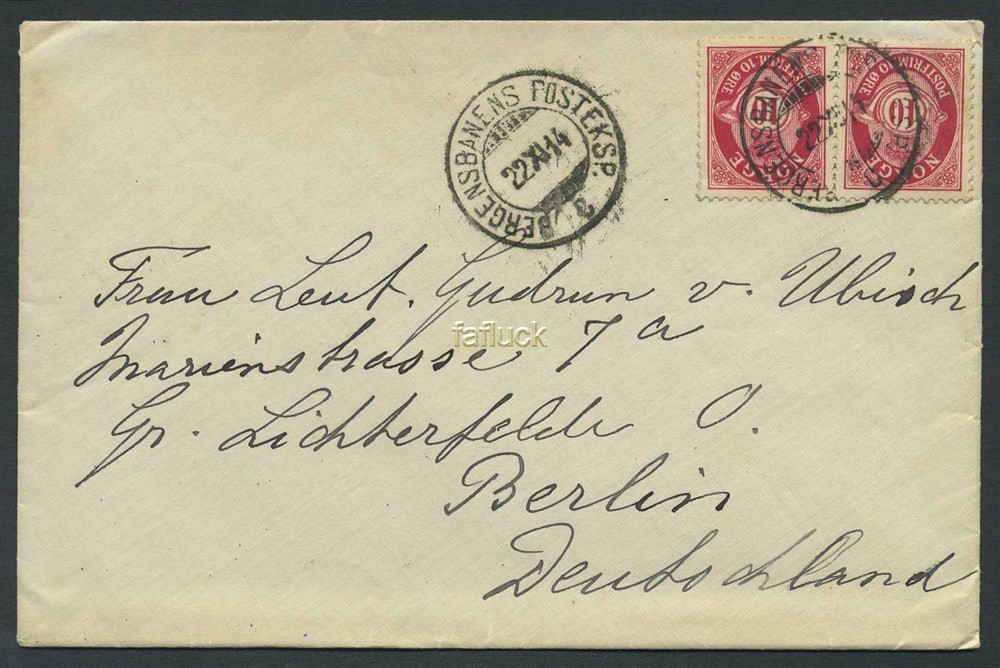 BERGENSBANENS POSTEKSP. 3
22 XI 14
POSTFRIM. 10 ØRE
10
NORGE
POSTFRIM. 10 ØRE
10
NORGE
BERGENSBANENS
22 XI 14
Frau Leut. Gudrun v. Ubisch
fafluck
Marienstrasse 7 a
Gr. Lichterfelde O.
Berlin
Deutschland